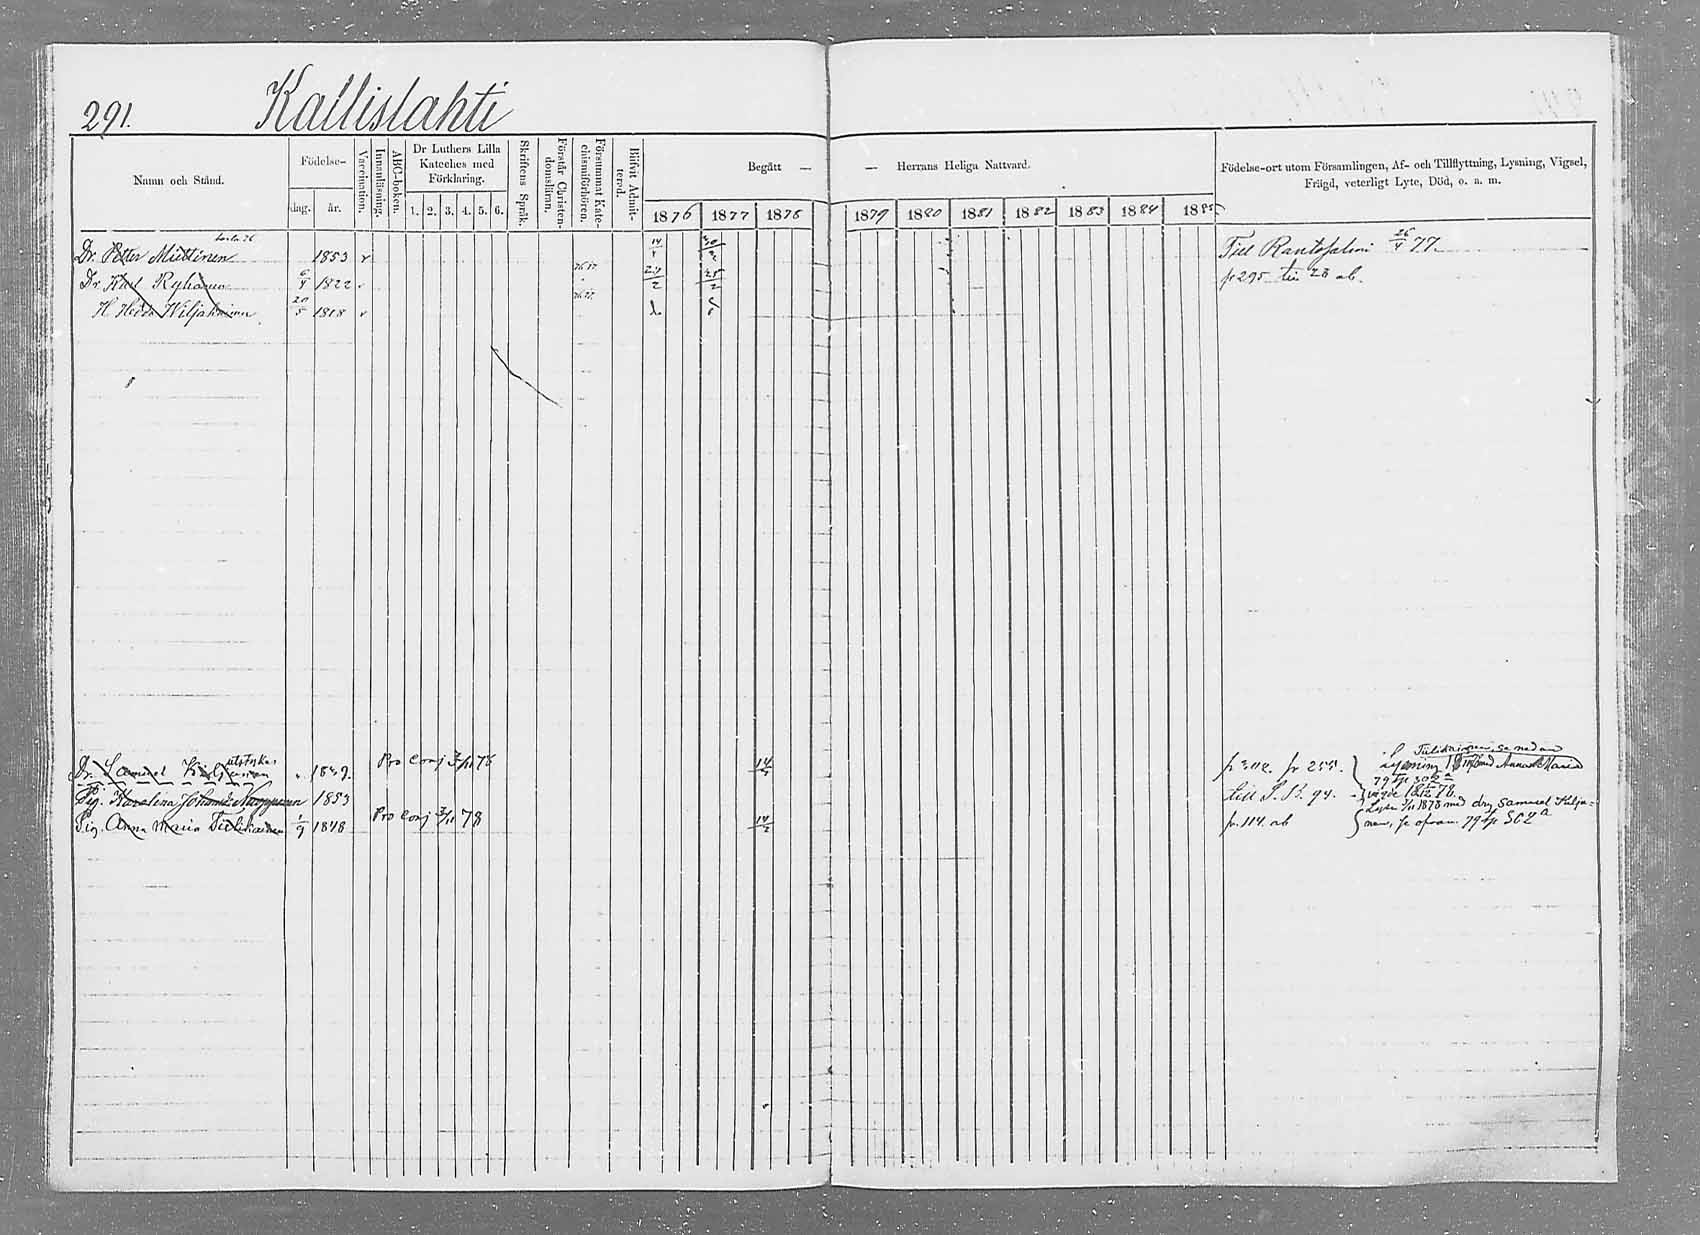 291. Kallislahti
Namn och Stånd.
Födelse-
dag. år.
Vaccination.
Innanläsning.
ABC-boken.
Dr Luthers Lilla
Kateches med
Förklaring.
1. 2. 3. 4. 5. 6.
Skriftens Språk.
Förstår Christen-
domsläran.
Försummat Kate-
chismiförhören.
Blifvit Admit-
terad.
Begått — — Herrans Heliga Nattvard.
1876 1877 1878 1879 1880 1881 1882 1883 1884 1885
Födelse-ort utom Församlingen, Af- och Tillflyttning, Lysning, Vigsel,
Frägd, veterligt Lyte, Död, o. a. m.
Dr. Petter Muttinen 1853 v Till Rantasalmi 26/4 77.
Dr Karl Ryhänen 6/4 1822 v 76 77 27/2 25/2 fr 295 till 28 ab.
H Hedda Wiljakainen 20/5 1818 v 76 77
Dr. Samuel 1849. Pro Conj 3/11 78 14/2 fr 255.
Lysning med Anna Maria
vigde 78.
Pig. Karolina Johanna Nuopponen 1853 till S. B. 94.
Pig. Anna Maria Tulikainen 1/9 1848 Pro Conj 3/11 78 14/2 fr. 114 ab
Lyst 3/11 1878 med drg Samuel Kilju-
nen, se ofvan. 79